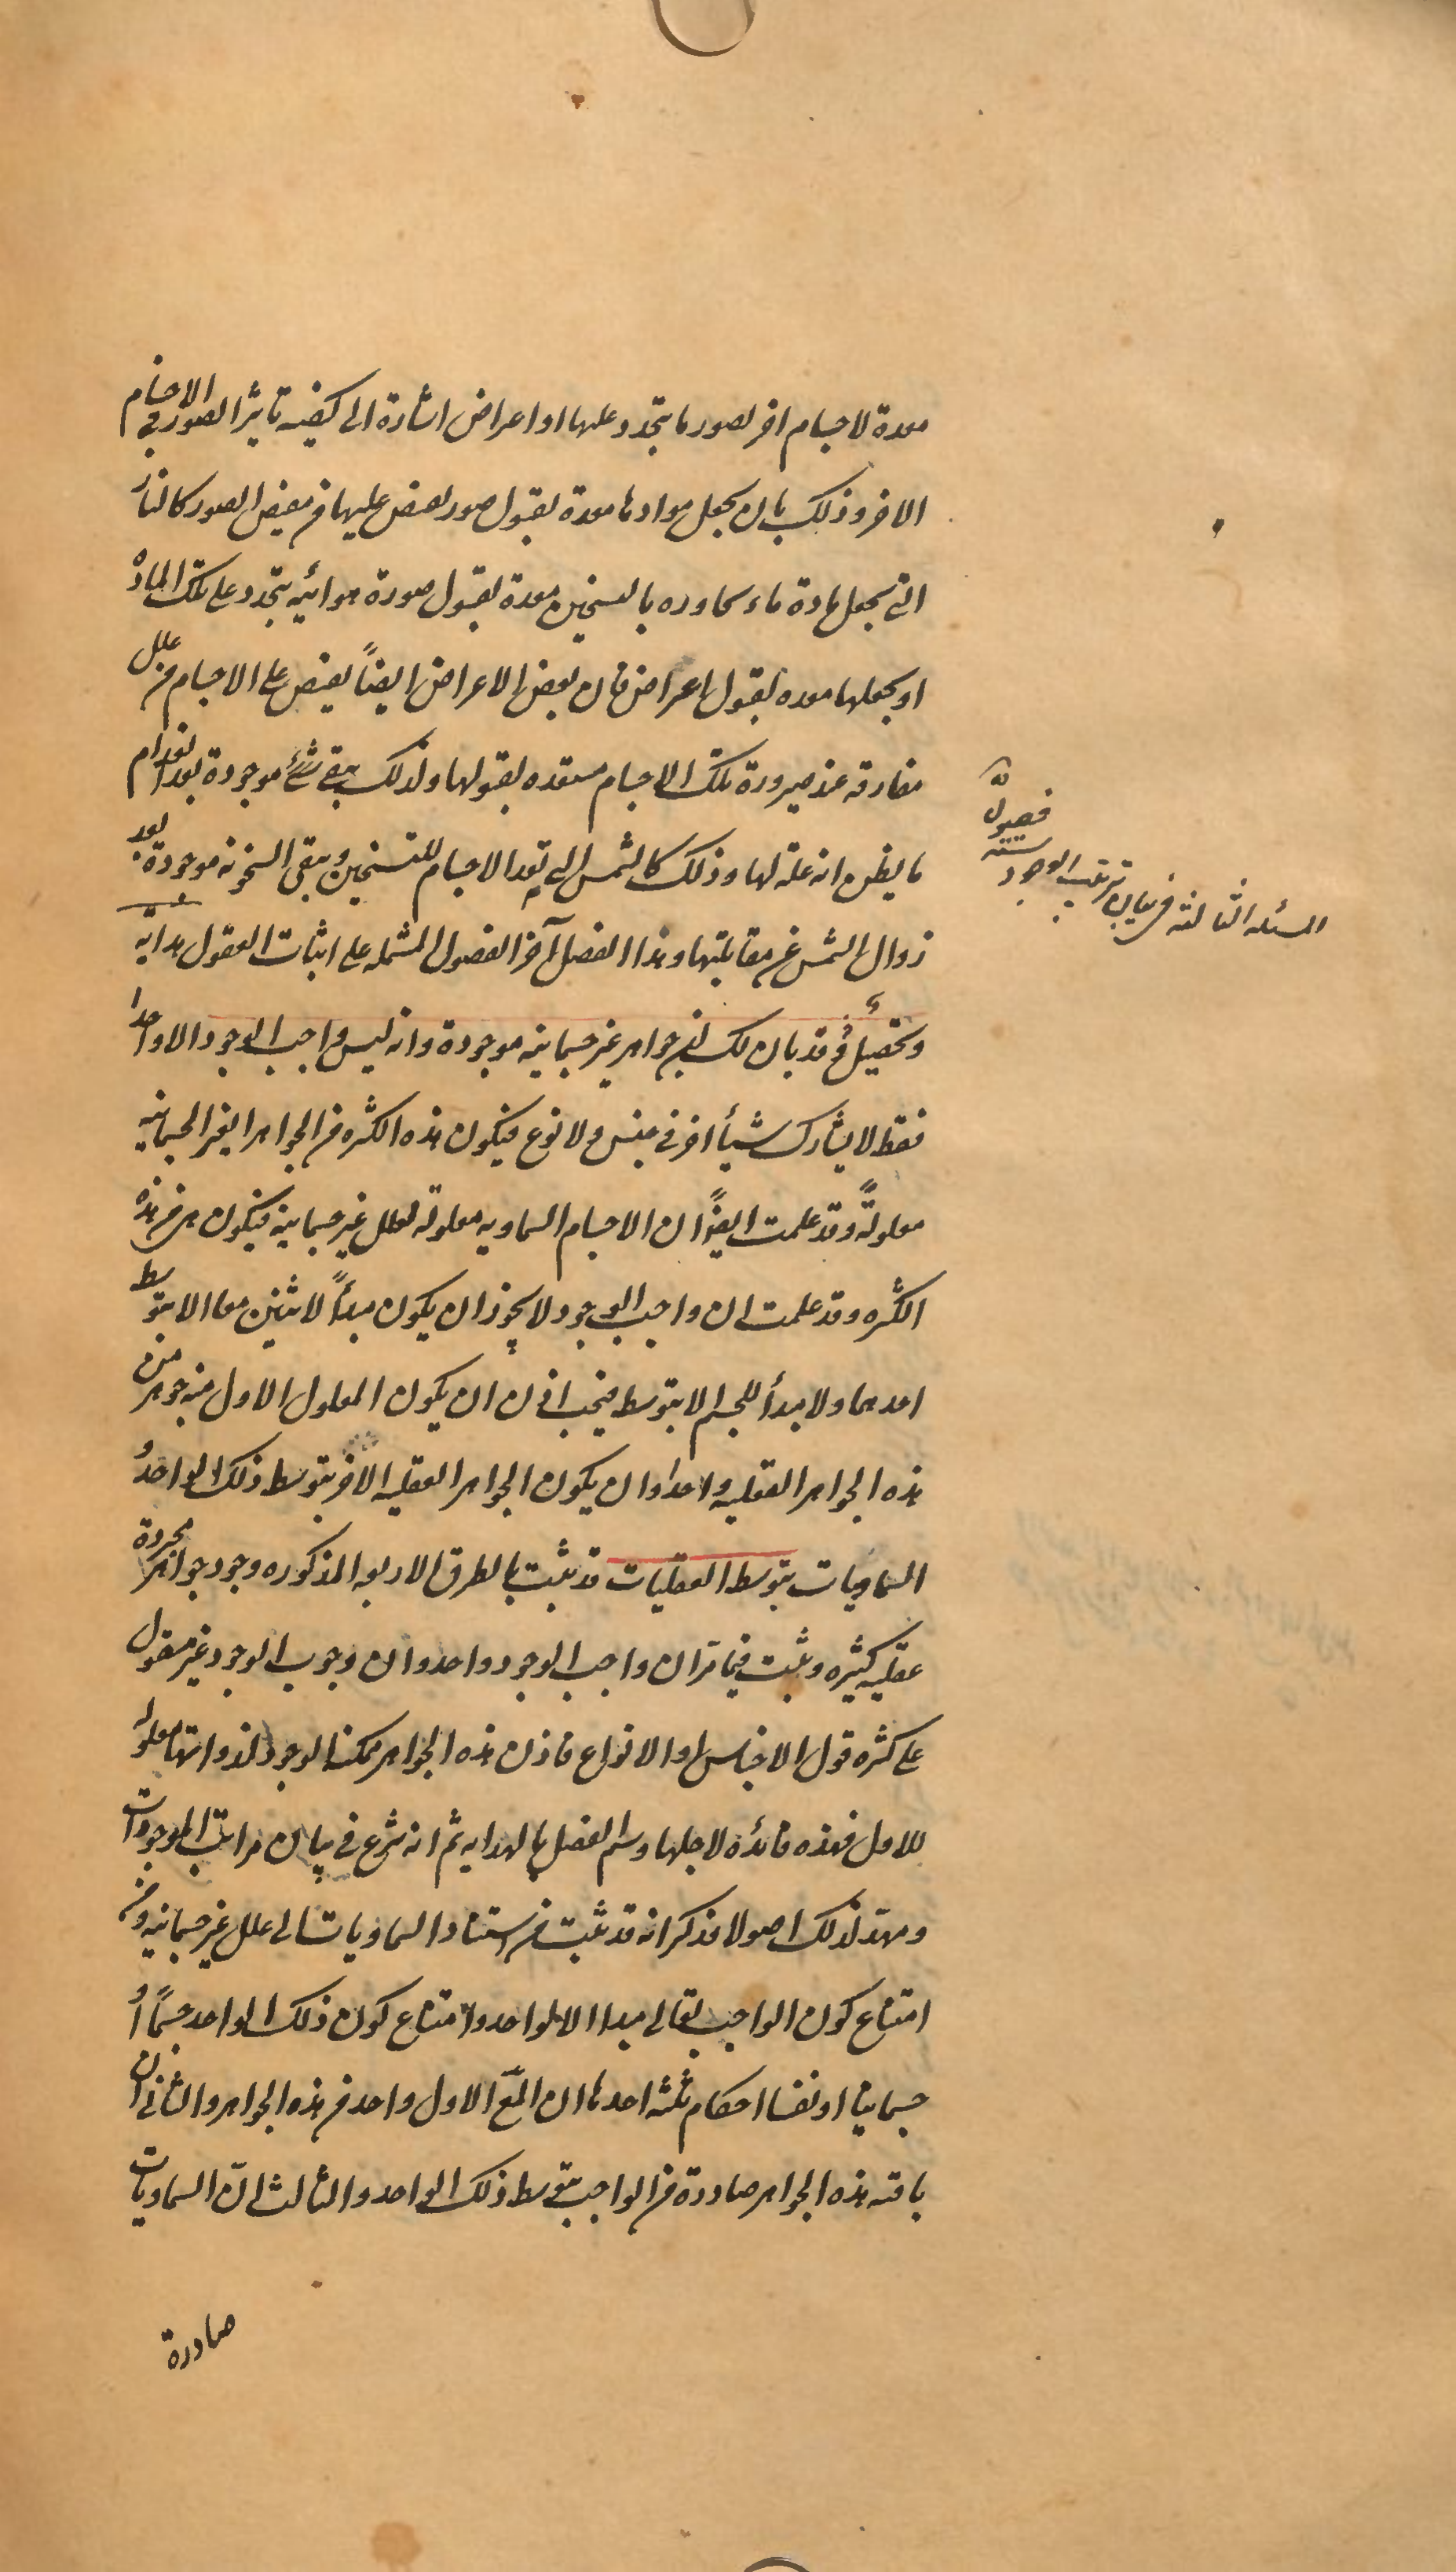 معدة لاجسام اخر لصور ما يتجدد عليها او اعراض اشارة الى كيفيه تاثير الصور في الاجسام
الاخر وذلك بان يجعل موادها معدة لقبول صور يفيض عليها من مفيض الصور كالنار
التي تجعل مادة ماء تجاوره بالتسخين معدة لقبول صورة هوائيه يتجدد على تلك المادة
او يجعلها معده لقبول اعراض فان بعض الاعراض ايضاً يفيض على الاجسام من علل
مفارقه عند صيرورة تلك الاجسام مستعده لقبولها ولذلك يبقى شئ موجودة بعد انعدام
ما يظن انه علة لها وذلك كالشمس التي تعد الاجسام للتسخين ويبقى السخونه موجودة بعد
زوال الشمس عن مقابلتها وهذا الفصل آخر الفصول المشتمله على اثبات العقول هدايه
وتحصيل فقد بان لك ان جواهر غير جسمانيه موجودة وانه ليس واجب الوجود الا واحدا
فقط لا يشارك شيأ اخر في جنس ولا نوع فيكون هذه الكثره من الجواهر الغير الجسمانيه
معلولةً وقد علمت ايضاً ان الاجسام السماويه معلوله لعلل غير جسمانيه فيكون هي من هذه
الكثره وقد علمت ان واجب الوجود لا يجوز ان يكون مبدأً لاثنين معا الا بتوسط
احدهما ولا مبدأ للجسم الا بتوسط فيجب اذن ان يكون المعلول الاول منه جوهرا من
هذه الجواهر العقليه واحدا وان يكون الجواهر العقليه الاخر بتوسط ذلك الواحد و
السماويات بتوسط العقليات قد ثبت بالطرق الاربعه المذكوره وجود جواهر مجردة
عقليه كثيره وثبت فيما مر ان واجب الوجود واحد وان وجوب الوجود غير مقول
على كثره قول الاجناس او الانواع فاذن هذه الجواهر ممكنة الوجود لذواتها معلوله
للاول فهذه فائده لاجلها وسم الفصل بالهدايه ثم انه شرع في بيان مراتب الموجودات
ومهد لذلك اصولا فذكر انه قد ثبت من استناد السماويات الى علل غير جسمانيه ومن
امتناع كون الواجب تعالى مبدا الا لواحد وامتناع كون ذلك الواحد جسماً او
جسمانيا او نفسا احكام ثلثه احدها ان المع الاول واحد من هذه الجواهر والثاني ان
باقيه هذه الجواهر صادرة من الواجب بتوسط ذلك الواحد والثالث ان السماويات
صادرة
فصول
المسئله الثالثه في بيان ترتيب الوجود
سته